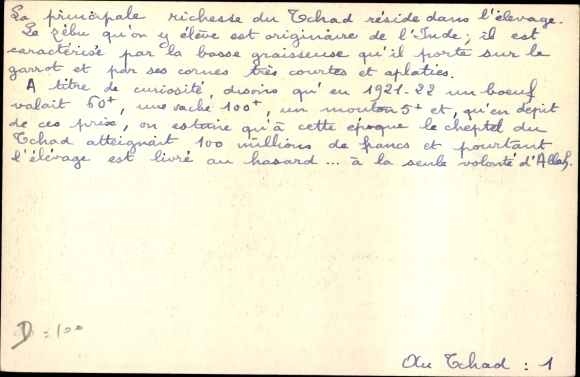 La principale richesse du Tchad réside dans l'élevage.
Le zébu qu'on y élève est originaire de l'Inde ; il est
caractérisé par la bosse graisseuse qu'il porte sur le
garrot et par ses cornes très courtes et aplaties.
A titre de curiosité, disons qu'en 1921-22 un boeuf
valait 60ᶠ, une vache 100ᶠ, un mouton 5ᶠ et, qu'en dépit
de ces prix, on estime qu'à cette époque le cheptel du
Tchad atteignait 100 millions de francs et pourtant
l'élevage est livré au hasard ... à la seule volonté d'Allah.
D = 100
Au Tchad : 1